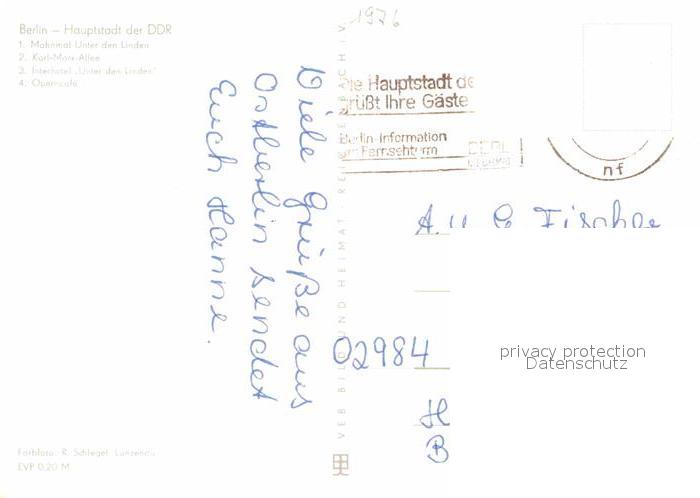 Berlin – Hauptstadt der DDR
1. Mahnmal Unter den Linden
2. Karl-Marx-Allee
3. Interhotel „Unter den Linden"
4. Operncafé
1976
Viele Grüße aus
Ostberlin sendet
Euch Hanne.
Hauptstadt de
rüßt Ihre Gäste
Berlin-Information
Fernsehturm
nf
A. u. C Fischer
02984
privacy protection
Datenschutz
H
B
VEB BILD UND HEIMAT REICHENBACH I. V.
Farbfoto: R. Schlegel, Lunzenau
EVP 0,20 M